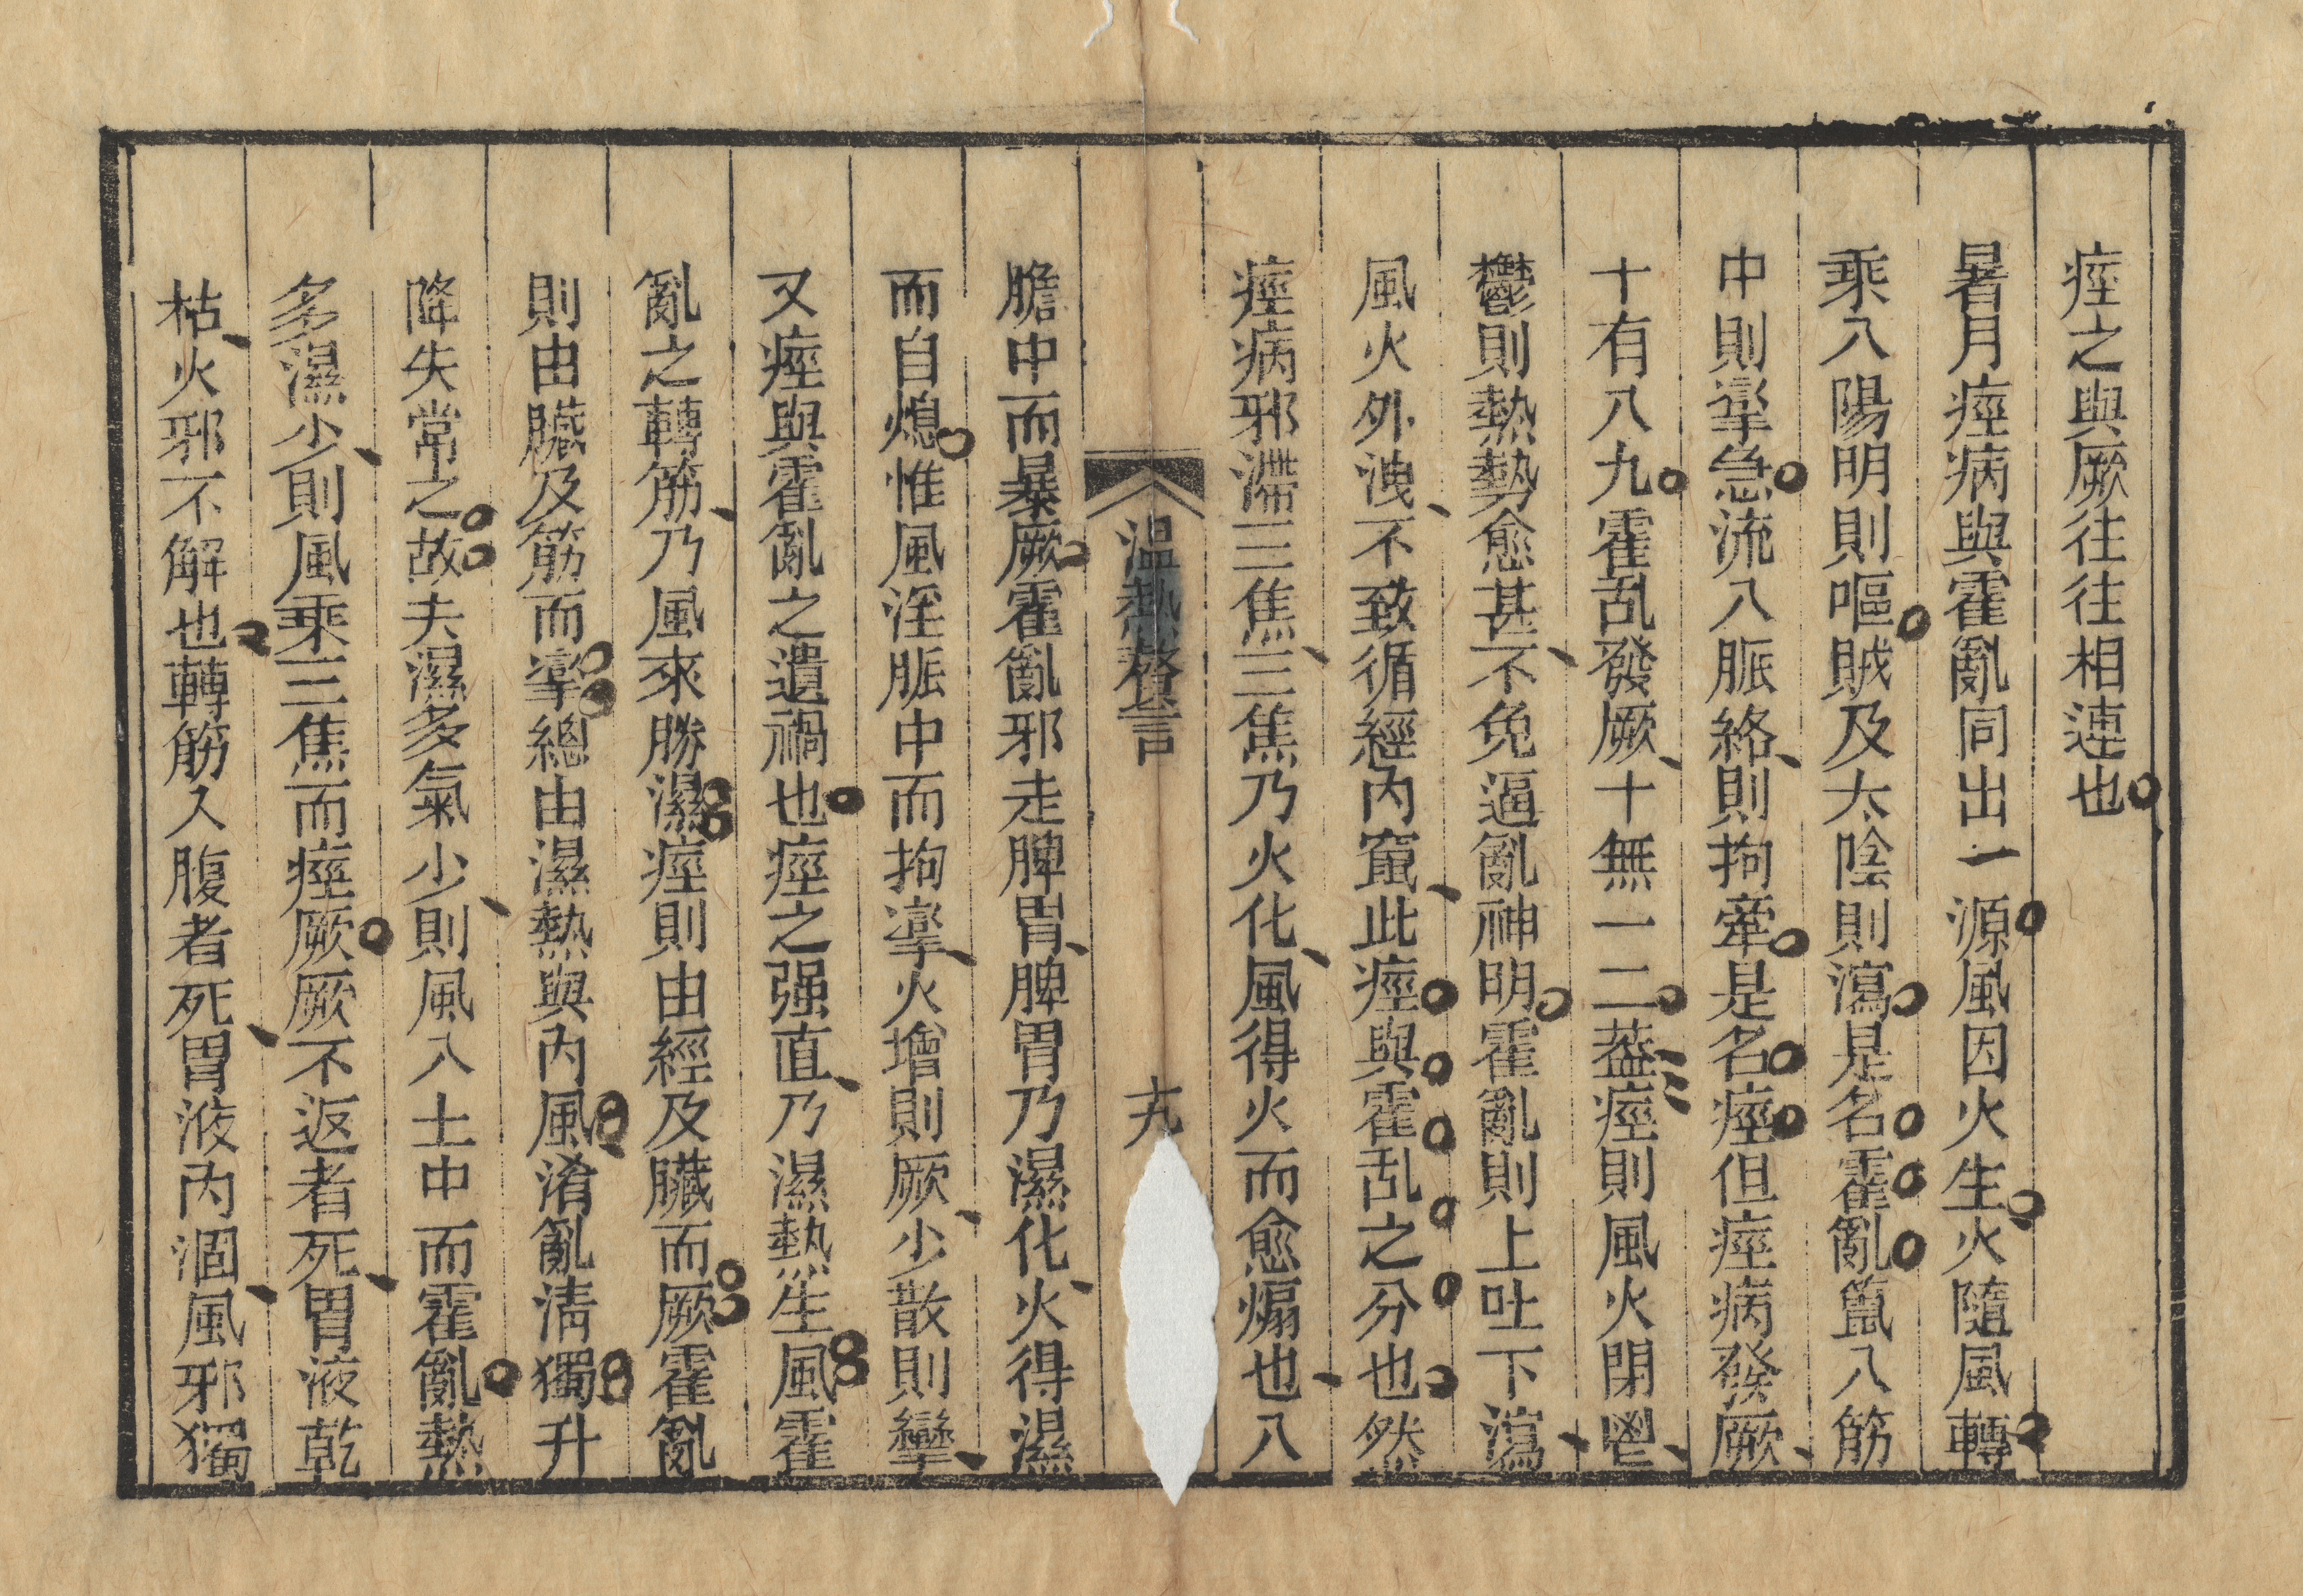 痙之與厥往往相連也
暑月痙病與霍亂同出一源風因火生火隨風轉
乘入陽明則嘔賊及太陰則瀉是名霍亂竄入筋
中則攣急流入脈絡則拘牽是名痙但痙病發厥
十有八九霍乱發厥十無一二葢痙則風火閉鬯
鬱則熱勢愈甚不免逼亂神明霍亂則上吐下瀉
風火外洩不致循經內竄此痙與霍乱之分也然
痙病邪滯三焦三焦乃火化風得火而愈煽也入
溫熱贅言
十九
膽中而暴厥霍亂邪走脾胃脾胃乃濕化火得濕
而自熄惟風淫脈中而拘攣火增則厥少散則攣
又痙與霍亂之遺禍也痙之强直乃濕熱生風霍
亂之轉筋乃風來勝濕痙則由經及臟而厥霍亂
則由臟及筋而攣總由濕熱與內風淆亂淸獨升
降失常之故夫濕多氣少則風入土中而霍亂熱
多濕少則風乘三焦而痙厥厥不返者死胃液乾
枯火邪不解也轉筋入腹者死胃液內涸風邪獨